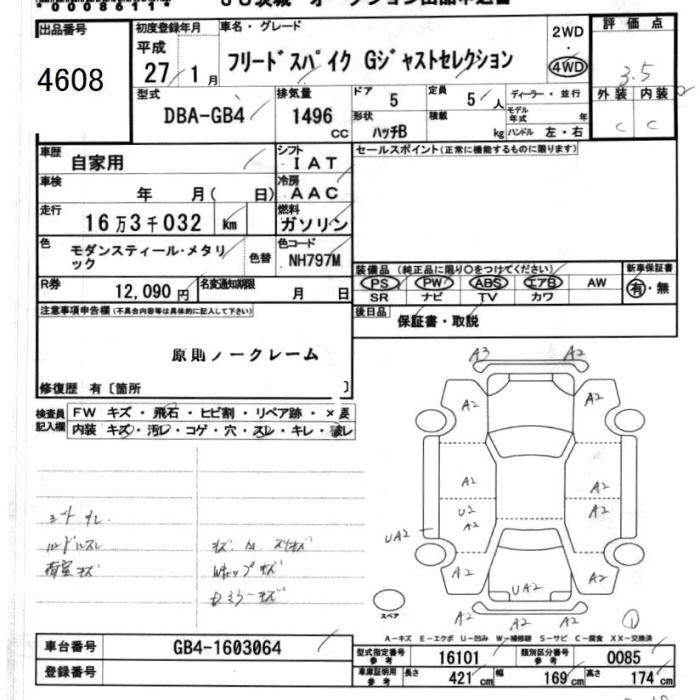 出品番号
4608
初度登録年月
平成
27 1月
車名・グレード
フリードスパイク Gジャストセレクション
2WD
・
4WD
評価点
3.5
外装 内装
C C
型式
DBA-GB4
排気量
1496
CC
ドア
5
定員
5人
ディーラー・並行
形状
ハッチB
積載
kg
モデル年式 年
ハンドル 左・右
車歴
自家用
シフト
IAT
車検
年 月( 日)
冷房
AAC
走行
16万3千032 km
燃料
ガソリン
色
モダンスティール・メタリック
色替
色コード
NH797M
R券
12,090円
名変通知期限
月 日
セールスポイント(正常に機能するものに限ります)
装備品(純正品に限り○をつけてください)
PS PW ABS エアB AW
SR ナビ TV カワ
新車保証書
有・無
後日品
保証書・取説
注意事項申告欄(不具合内容等は具体的に記入して下さい)
原則ノークレーム
修復歴 有〔箇所 〕
検査員記入欄
FW キズ・飛石・ヒビ割・リペア跡・×要
内装 キズ・汚レ・コゲ・穴・スレ・キレ・破レ
A3 A2
A2 A2
A2 A2
U2 A2
A2
UA2
A2 UA2 A2
A2 A2
ハンドルスレ
荷室キズ
Wキップキズ
ミラーキズ
スペア
1
A-キズ E-エクボ U-凹み W-補修跡 S-サビ C-腐食 XX-交換済
車台番号
GB4-1603064
登録番号
型式指定番号 参考
16101
類別区分番号 参考
0085
車庫証明用 参考
長さ 421cm 幅 169cm 高さ 174cm